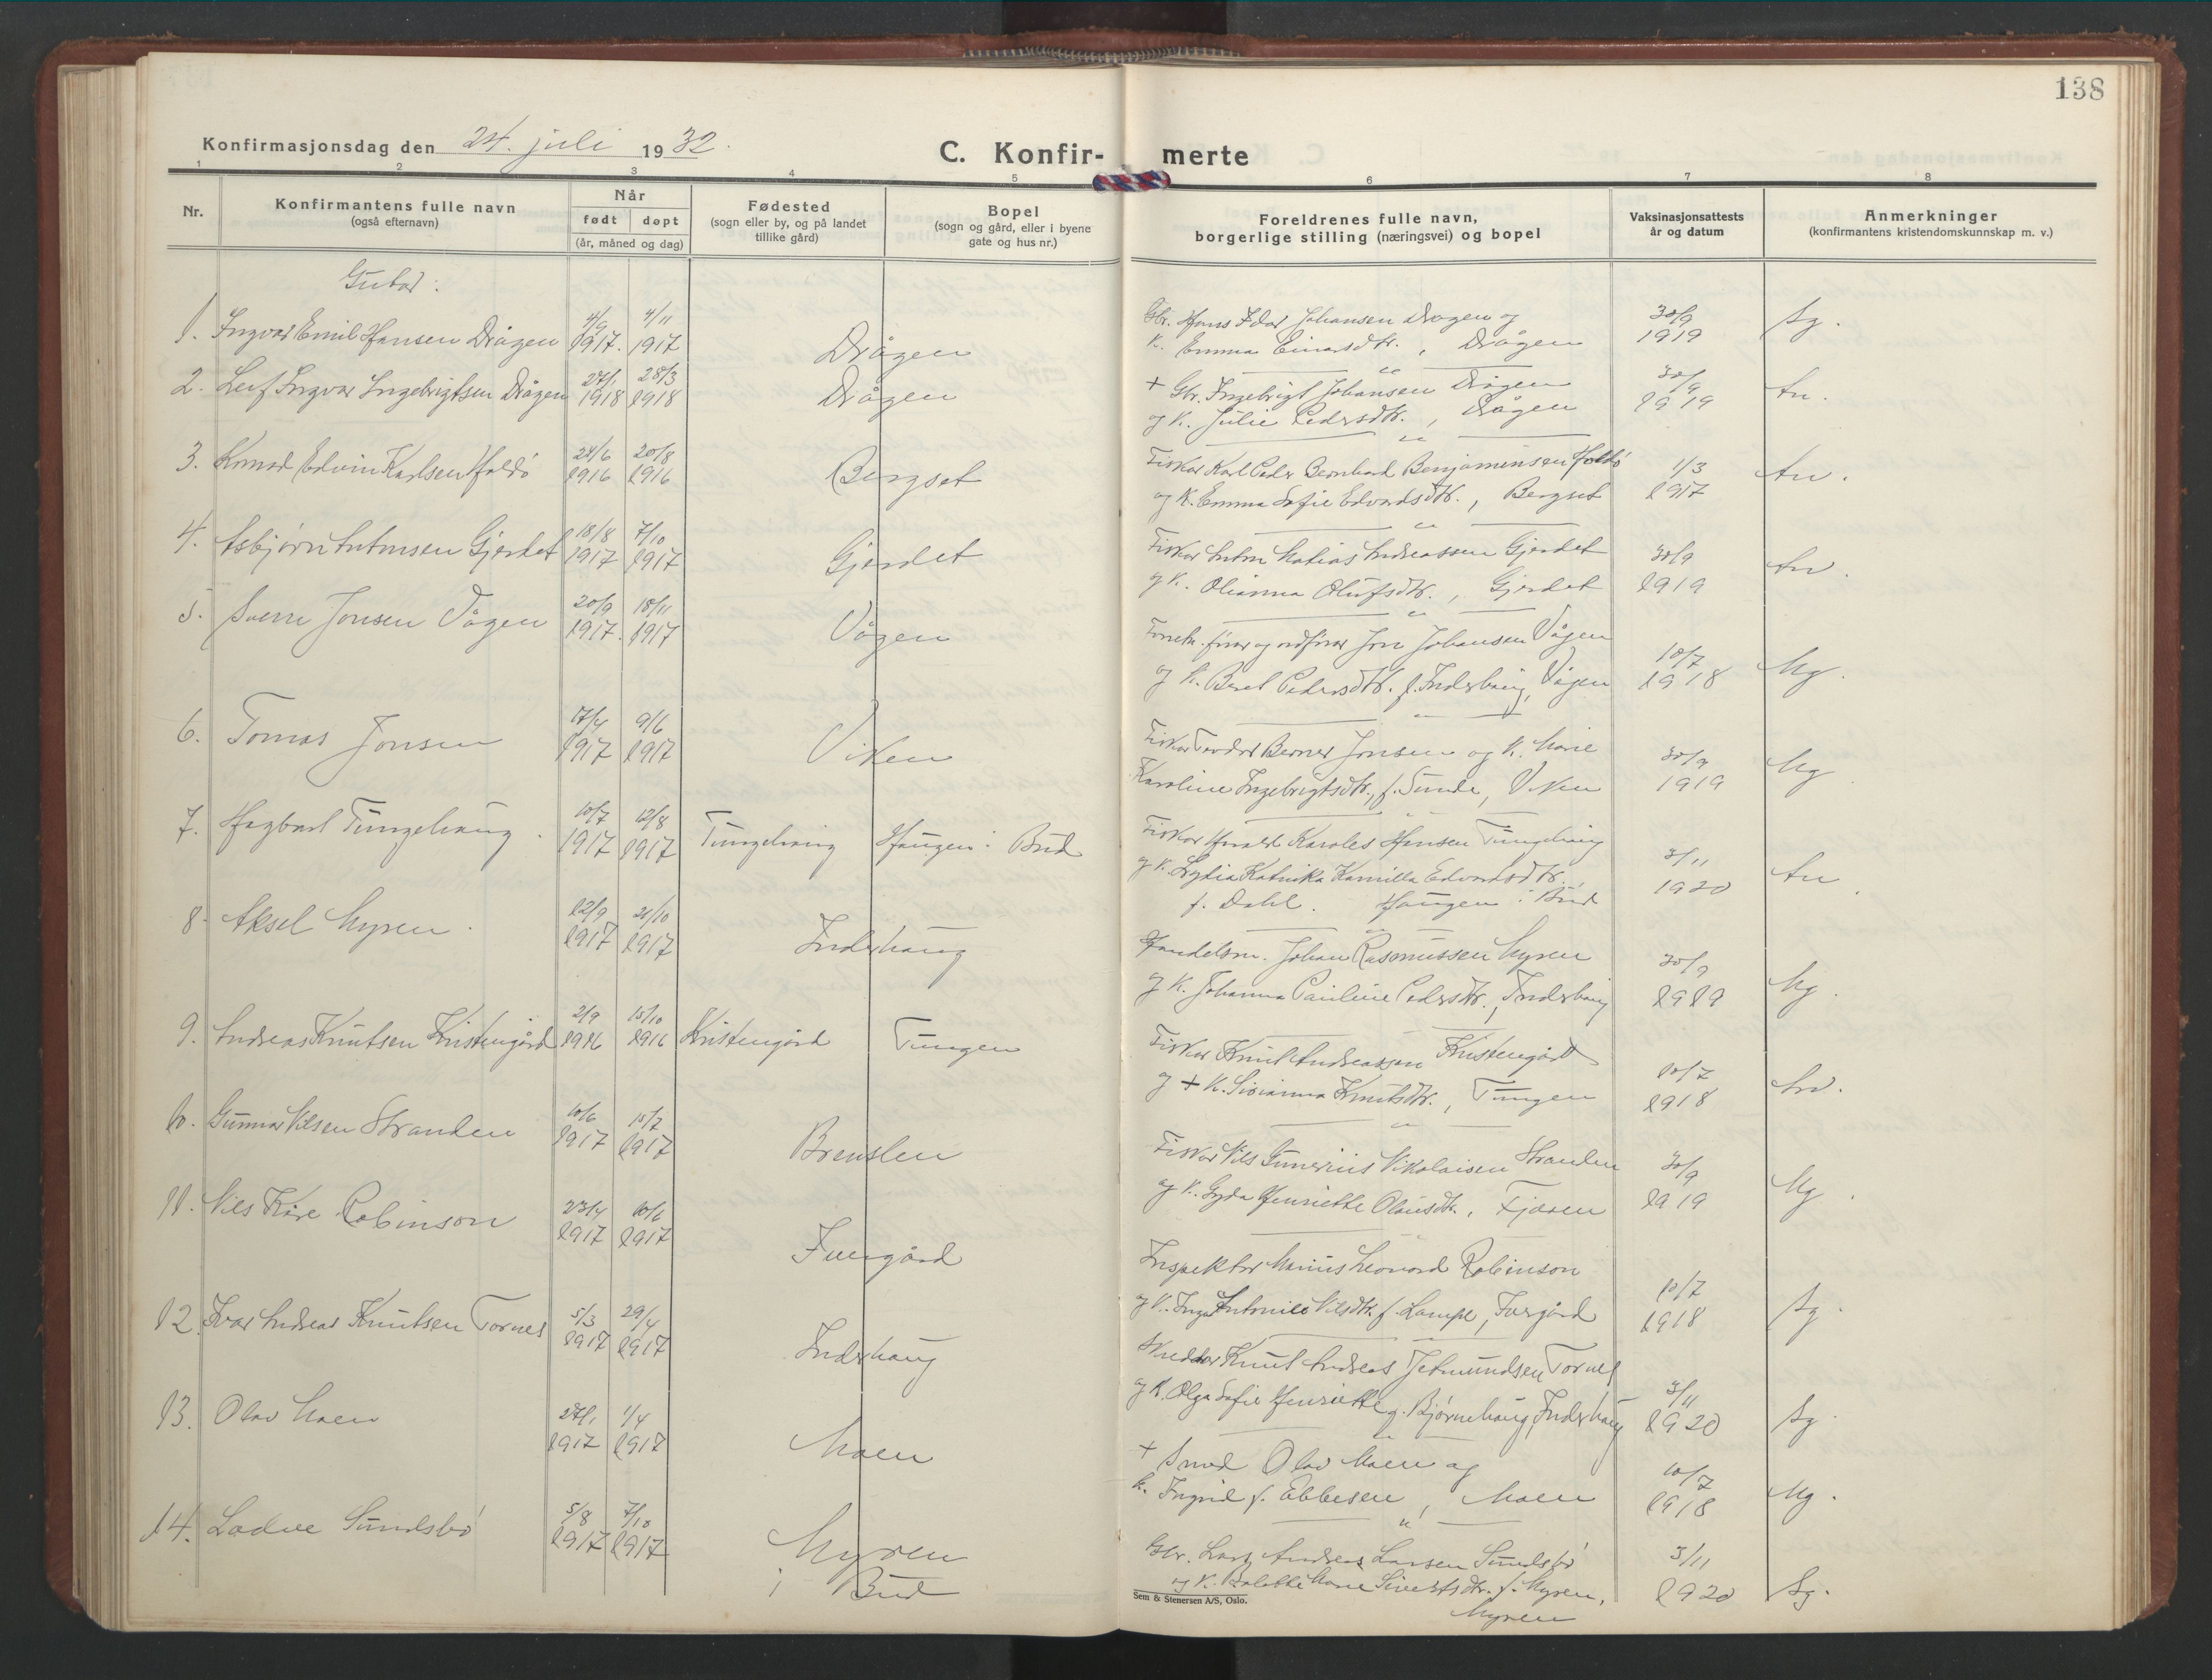 138
Konfirmasjonsdag den 24. juli 1932.
C. Konfir- merte
1 2 3 4 5 6 7 8
Nr.
Konfirmantens fulle navn
(også efternavn)
Når
født døpt
(år, måned og dag)
Fødested
(sogn eller by, og på landet
tillike gård)
Bopel
(sogn og gård, eller i byene
gate og hus nr.)
Foreldrenes fulle navn,
borgerlige stilling (næringsvei) og bopel
Vaksinasjonsattests
år og datum
Anmerkninger
(konfirmantens kristendomskunnskap m. v.)
Gutar:
1. Ingvar Emil Hansen Drågen 4/9 1917. 4/11 1917 Drågen
Gbr. Hans Johansen Drågen og
K. Emma Einarsdtr., Drågen 30/9 1919 Sg.
2. Leif Ingvar Ingebrigtsen Drågen 27/1 1918 28/3 1918 Drågen
+ Gbr. Ingebrigt Johansen Drågen
og K. Julie Pedersdtr., Drågen 30/9 1919
3. Konrad Edvin Karlsen Haldö 24/6 1916 20/8 1916 Bergset
Fiskar Karl Peder Bernhard Benjaminsen Haldö
og K. Emma Sofie Edvardsdtr., Bergset 1/3 1917
4. Asbjørn Antonsen Gjerdet 18/8 1917 7/10 1917 Gjerdet
Fiskar Anton Matias Andreassen Gjerdet
og K. Olianna Olufsdtr., Gjerdet 30/9 1919
5. Sverre Jonsen Vågen 20/9 1917. 18/11 1917 Vågen
Forretn.førar og ordførar Jon Johansen Vågen
og K. Beret Pedersdtr. f. Inderhaug, Vågen 10/7 1918 Mg.
6. Tomas Jonsen 17/4 1917 9/6 1917 Viken
Fiskar Teodor Berner Jonsen og K. Marie
Karoline Ingebrigtsdtr., f. Sunde, Viken 30/9 1919 Mg.
7. Hagbart Tungehaug. 10/7 1917 12/8 1917 Tungehaug Haugen i Bud
Fiskar Harald Karoles Hansen Tungehaug
og K. Lydia Katinka Kamilla Edvardsdtr.,
f. Dahl. Haugen i Bud 3/11 1920
8. Aksel Myren. 12/9 1917 21/10 1917 Inderhaug
Handelsm. Johan Rasmussen Myren
og K. Johanna Pauline Pedersdtr., Inderhaug 30/9 1919 Mg.
9. Andreas Knutsen Kristengård 2/9 1916 15/10 1916 Kristengård Tungen
Fiskar Knut Andreassen Kristengård
og + K. Sivianna Knutsdtr., Tungen 10/7 1918
10. Gunnar Nilsen Stranden 10/6 1917 15/7 1917 Breuslen
Fiskar Nils Gunerius Nikolaisen Stranden
og K. Gyda Henriette Olausdtr., Fjæren 30/9 1919 Mg.
11. Nils Kåre Robinson 23/4 1917 10/6 1917
Inspektør Marius Leonard Robinson
og K. Inga Antonie Nilsdtr. f. Lampe, 10/7 1918 Sg.
12. Ivar Andreas Knutsen Tornes 5/3 1917 29/4 1917 Inderhaug
Skreddar Knut Andreas Jetmundsen Tornes
og K. Olga Sofie Henriette g. Bjørnehaug, Inderhaug 3/11 1920 Sg.
13. Olav Moen 27/1 1917 1/4 1917 Moen
+ Smed Olav Moen og
K. Ingrid f. Ebbesen, Moen 10/7 1918 Mg.
14. Ladve Sundsbö 5/8 1917 7/10 1917 Myren
i Bud
Gbr. Lars Andreas Larsen Sundsbö
og K. Marie Sivertsdtr. f. Myren,
Myren 3/11 1920 Sg.
Sem & Stenersen A/S, Oslo.